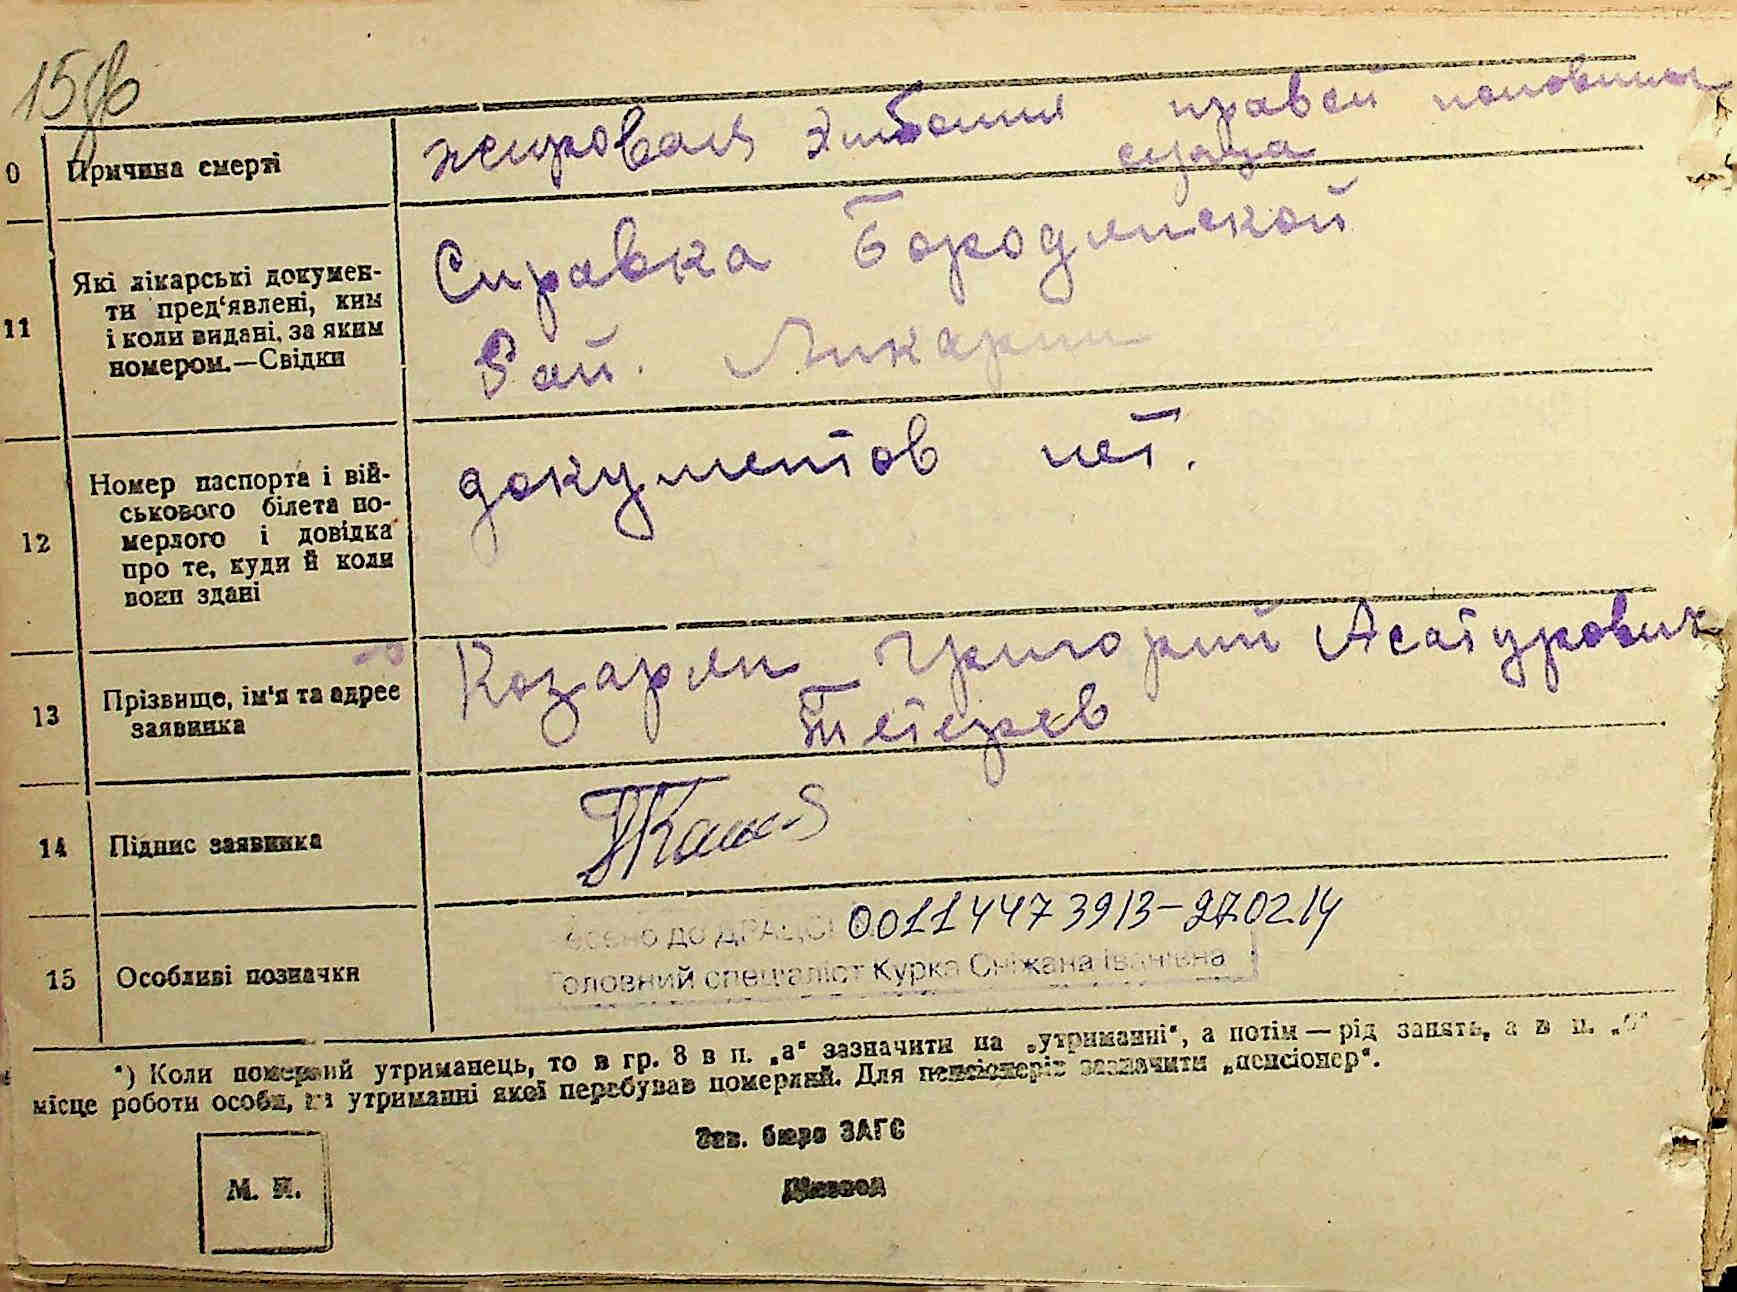 15об
0 Причина смерті
жировая эмболия правой половины
сердца
11 Які лікарські докумен-
ти пред'явлені, ким
і коли видані, за яким
номером.—Свідки
Справка Бородянской
Рай. Ликарни
12 Номер паспорта і вій-
ськового білета по-
мерлого і довідка
про те, куди й коли
вони здані
документов нет.
13 Прізвище, ім'я та адрес
заявника
Козарян Григорий Асатурович
Тетерев
14 Підпис заявника
15 Особливі позначки
несено до ДРАЦС 00114473913-270214
Головний спеціаліст Курка Сніжана Іванівна
*) Коли померлий утриманець, то в гр. 8 в п. „а“ зазначити на „утриманні“, а потім — рід занять, а в п. „б“
місце роботи особи, на утриманні якої перебував померлий. Для пенсіонерів зазначити „пенсіонер“.
Зав. бюро ЗАГС
М. П.
Діловод